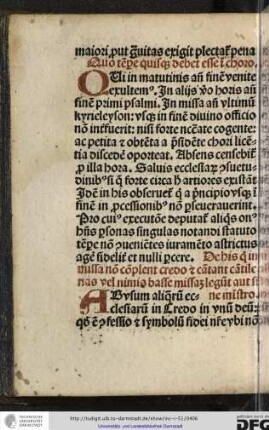 maiori ꝓut g̃uitas exigit plectat᷑ pena
Quo tꝑe quisqꝫ debet esse ĩ choro.
QUi in matutinis añ finẽ venite
exultem⁹. In alijs ṽo horis añ
finẽ primi psalmi. In missa añ vltimũ
kyrieleyson: vsqꝫ in finẽ diuino officio
nõ int̃fuerit: nisi forte nccẽate cogente:
ac petita ⁊ obtẽta a p̃sidẽte chori licẽ-
tia discedẽ oporteat. Absens censebit᷑
ꝑ illa hora. Saluis ecclesiaꝝ ꝯsuetu-
dinibꝰ si q̃ forte circa h̃ artiores existãt
Idẽ in his obseruet᷑ q̃ a p̃ncipio vsqꝫ ĩ
finẽ in ꝓcessionibꝰ nõ ꝑseuerauerint.
Pro cuiꝰ executõne deputat᷑ aliqs̃ on⁊
hñs ꝑsonas singulas notandi statuto
tꝑe nõ ꝯueniẽtes iuramẽto astrictus
agẽ fidelit᷑ et nulli ꝑcere. De his q̃ in
missa nõ cõplent credo ⁊ cãtant cãtile
nas vel nimis basse missaꝫ legũt aut si
ne ministro.
ABusum aliq̃rũ ec-
clesiarũ in Credo in vnũ deũ:
qd̃ ẽ ꝯfessio ⁊ symbolũ fidei nr̃e ybi nõ
http://tudigit.ulb.tu-darmstadt.de/show/inc-ii-51/0406
Universitäts- und Landesbibliothek Darmstadt
DFG